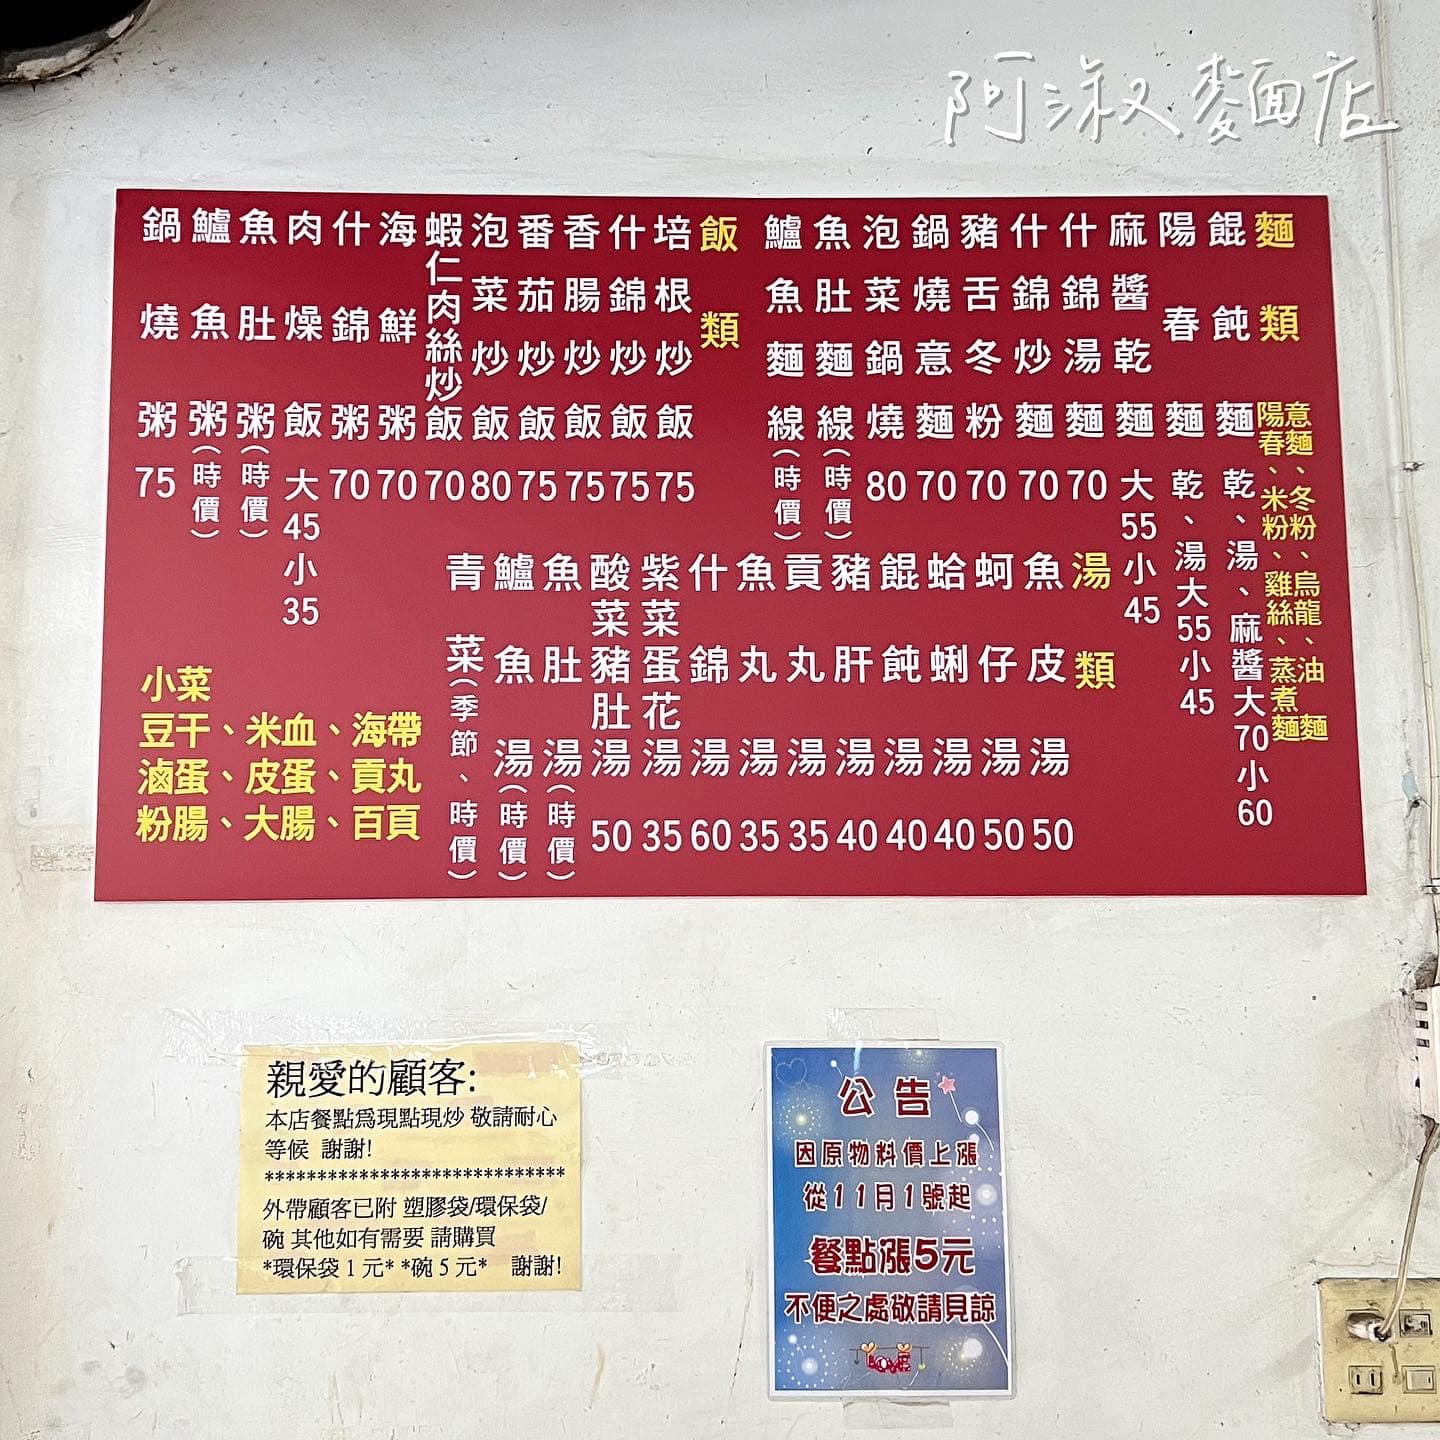 阿淑麵店
麵類
意麵、冬粉、烏龍、油麵
陽春、米粉、雞絲、蒸煮麵
餛飩麵 乾、湯、麻醬大70小60
陽春麵 乾、湯大55小45
麻醬乾麵 大55小45
什錦湯麵 70
什錦炒麵 70
豬舌冬粉 70
鍋燒意麵 70
泡菜鍋燒 80
魚肚麵線(時價)
鱸魚麵線(時價)
飯類
培根炒飯 75
什錦炒飯 75
香腸炒飯 75
番茄炒飯 75
泡菜炒飯 80
蝦仁肉絲炒飯 70
海鮮粥 70
什錦粥 70
肉燥飯 大45小35
魚肚粥(時價)
鱸魚粥(時價)
鍋燒粥 75
湯類
魚皮湯 50
蚵仔湯 50
蛤蜊湯 40
餛飩湯 40
豬肝湯 40
貢丸湯 35
魚丸湯 35
什錦湯 60
紫菜蛋花湯 35
酸菜豬肚湯 50
魚肚湯(時價)
鱸魚湯(時價)
青菜(季節、時價)
小菜
豆干、米血、海帶
滷蛋、皮蛋、貢丸
粉腸、大腸、百頁
親愛的顧客:
本店餐點為現點現炒 敬請耐心
等候 謝謝!
****************************
外帶顧客已附 塑膠袋/環保袋/
碗 其他如有需要 請購買
*環保袋 1 元* *碗 5 元* 謝謝!
公告
因原物料價上漲
從11月1號起
餐點漲5元
不便之處敬請見諒
LOVE